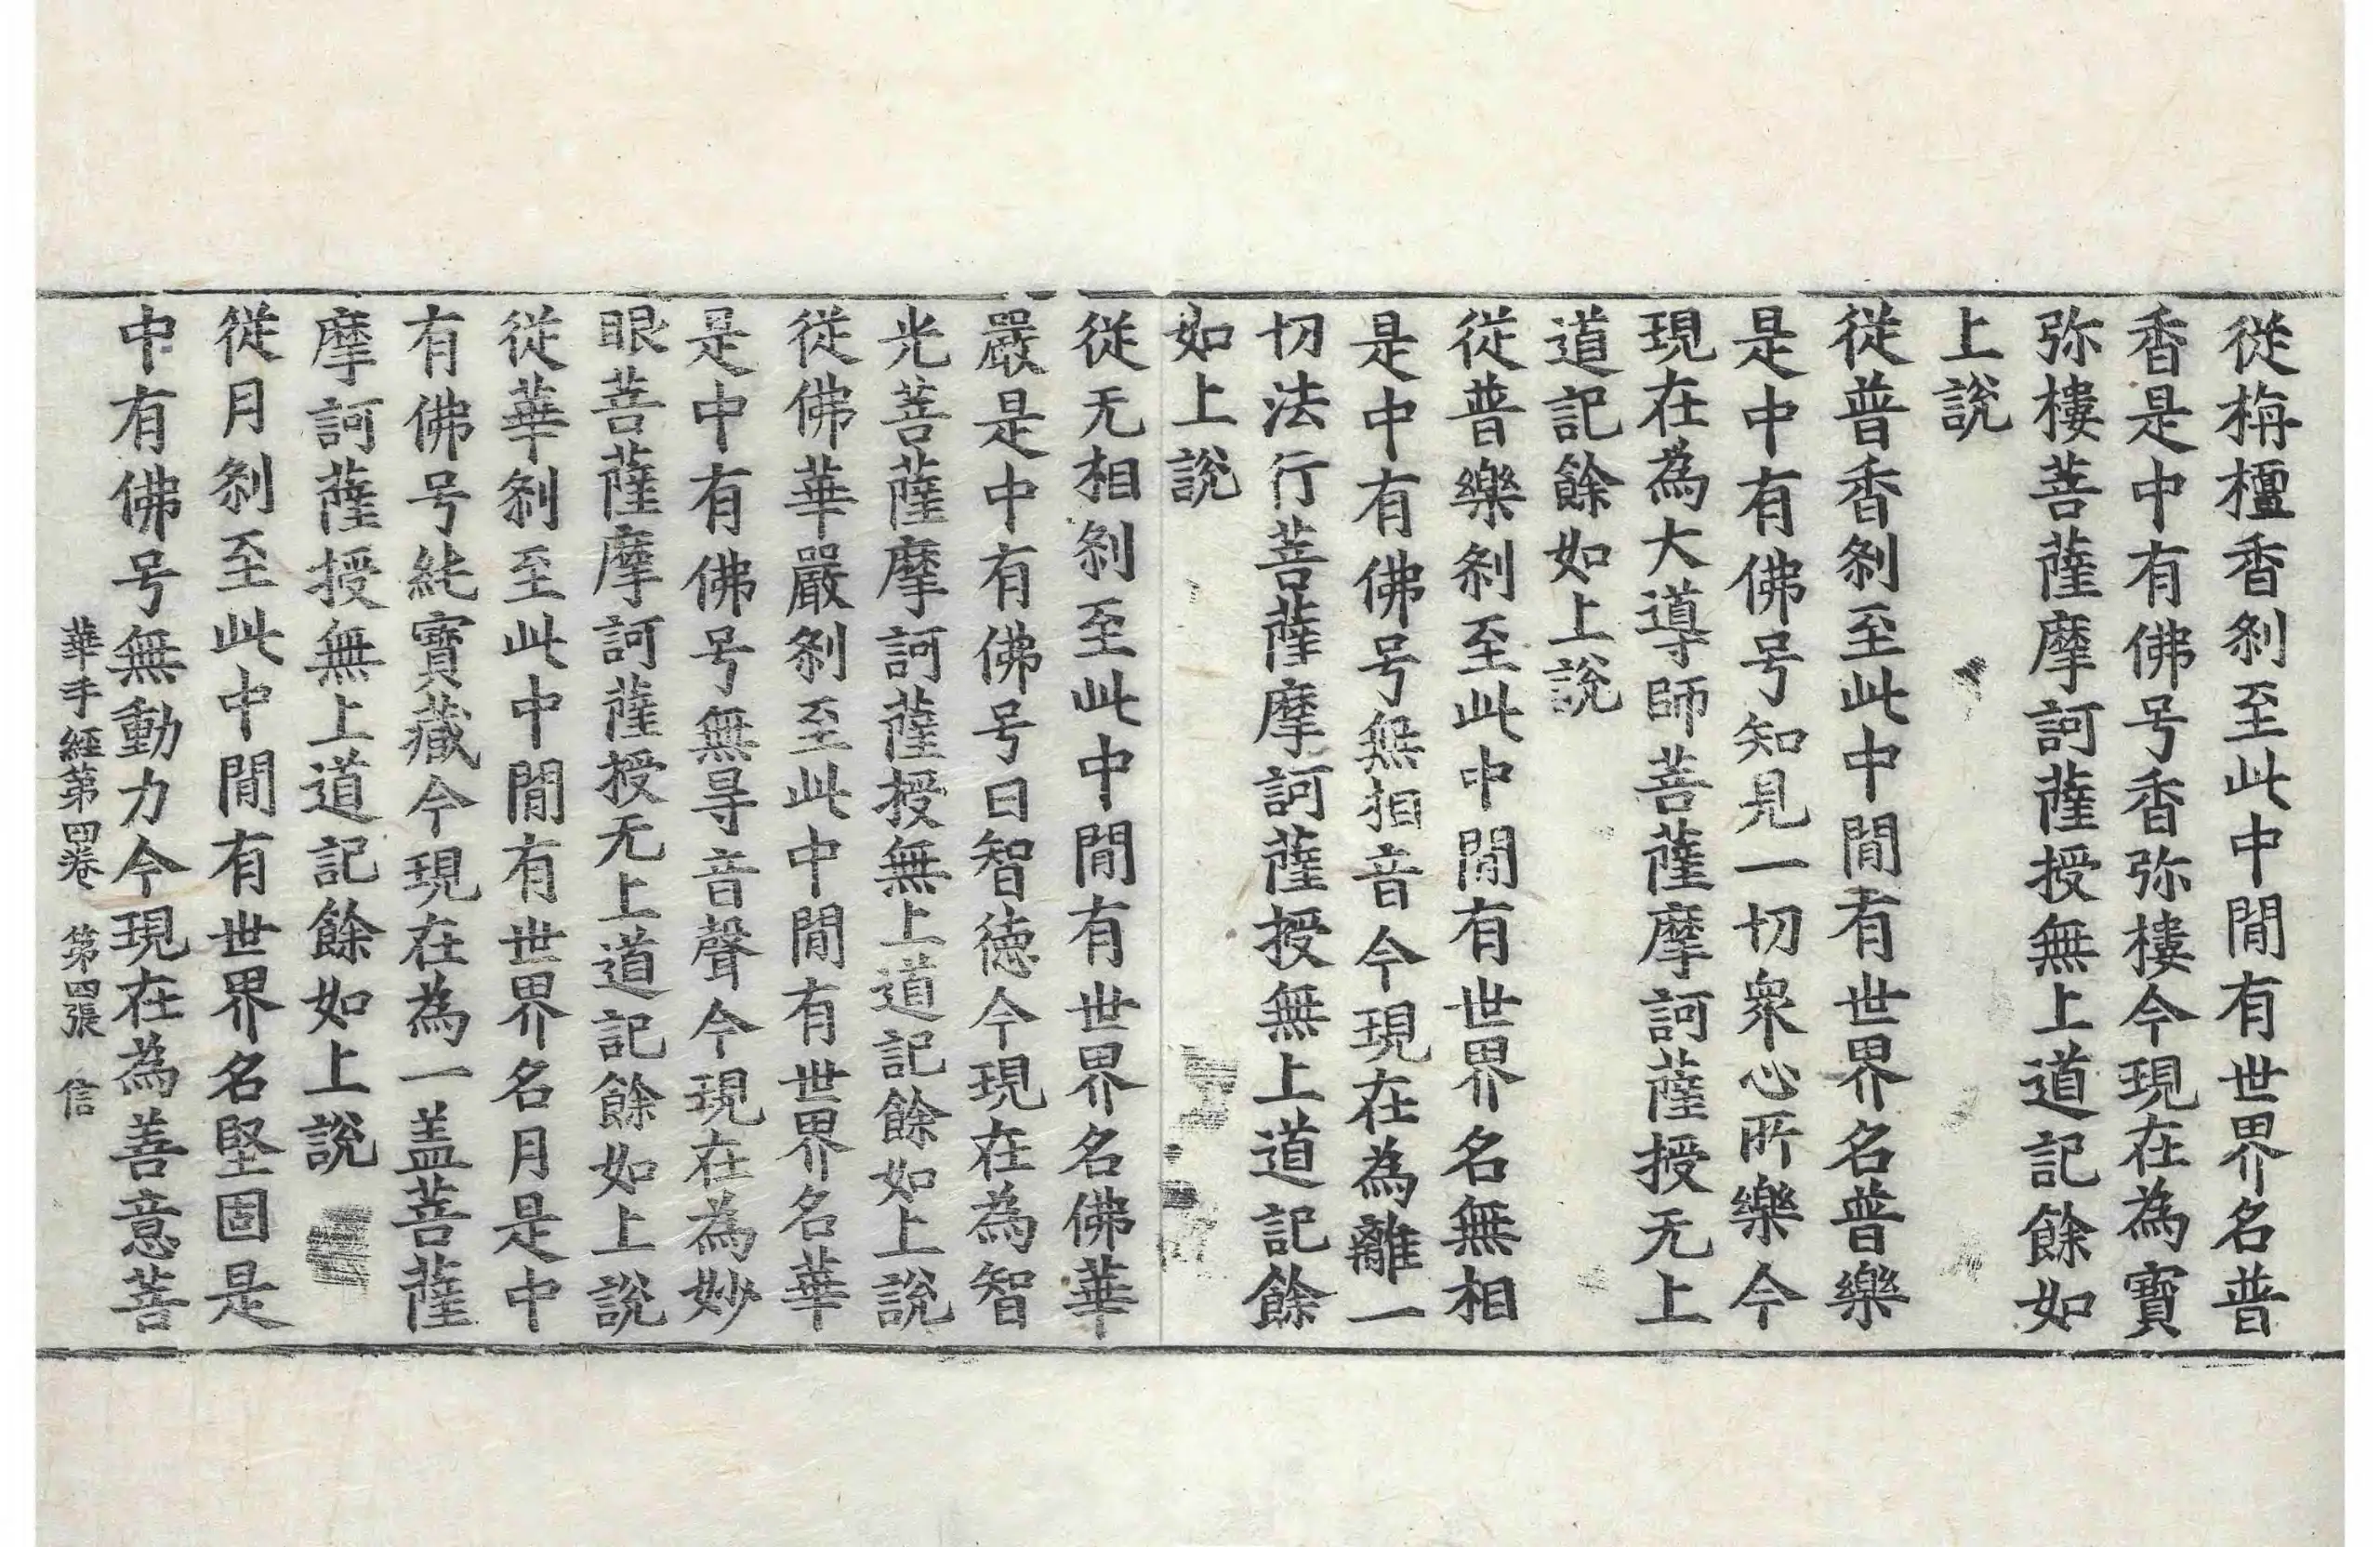 從栴檀香刹至此中閒有世界名普
香是中有佛号香弥樓今現在為寶
弥樓菩薩摩訶薩授無上道記餘如
上説
從普香刹至此中閒有世界名普樂
是中有佛号知見一切衆心所樂今
現在為大導師菩薩摩訶薩授无上
道記餘如上説
從普樂刹至此中閒有世界名無相
是中有佛号無相音今現在為離一
切法行菩薩摩訶薩授無上道記餘
如上説
從无相刹至此中閒有世界名佛華
嚴是中有佛号曰智德今現在為智
光菩薩摩訶薩授無上道記餘如上説
從佛華嚴刹至此中閒有世界名華
是中有佛号無㝵音聲今現在為妙
眼菩薩摩訶薩授无上道記餘如上説
從華刹至此中閒有世界名月是中
有佛号純寶藏今現在為一盖菩薩
摩訶薩授無上道記餘如上説
從月刹至此中閒有世界名堅固是
中有佛号無動力今現在為善意菩
華手經第四卷 第四張 信